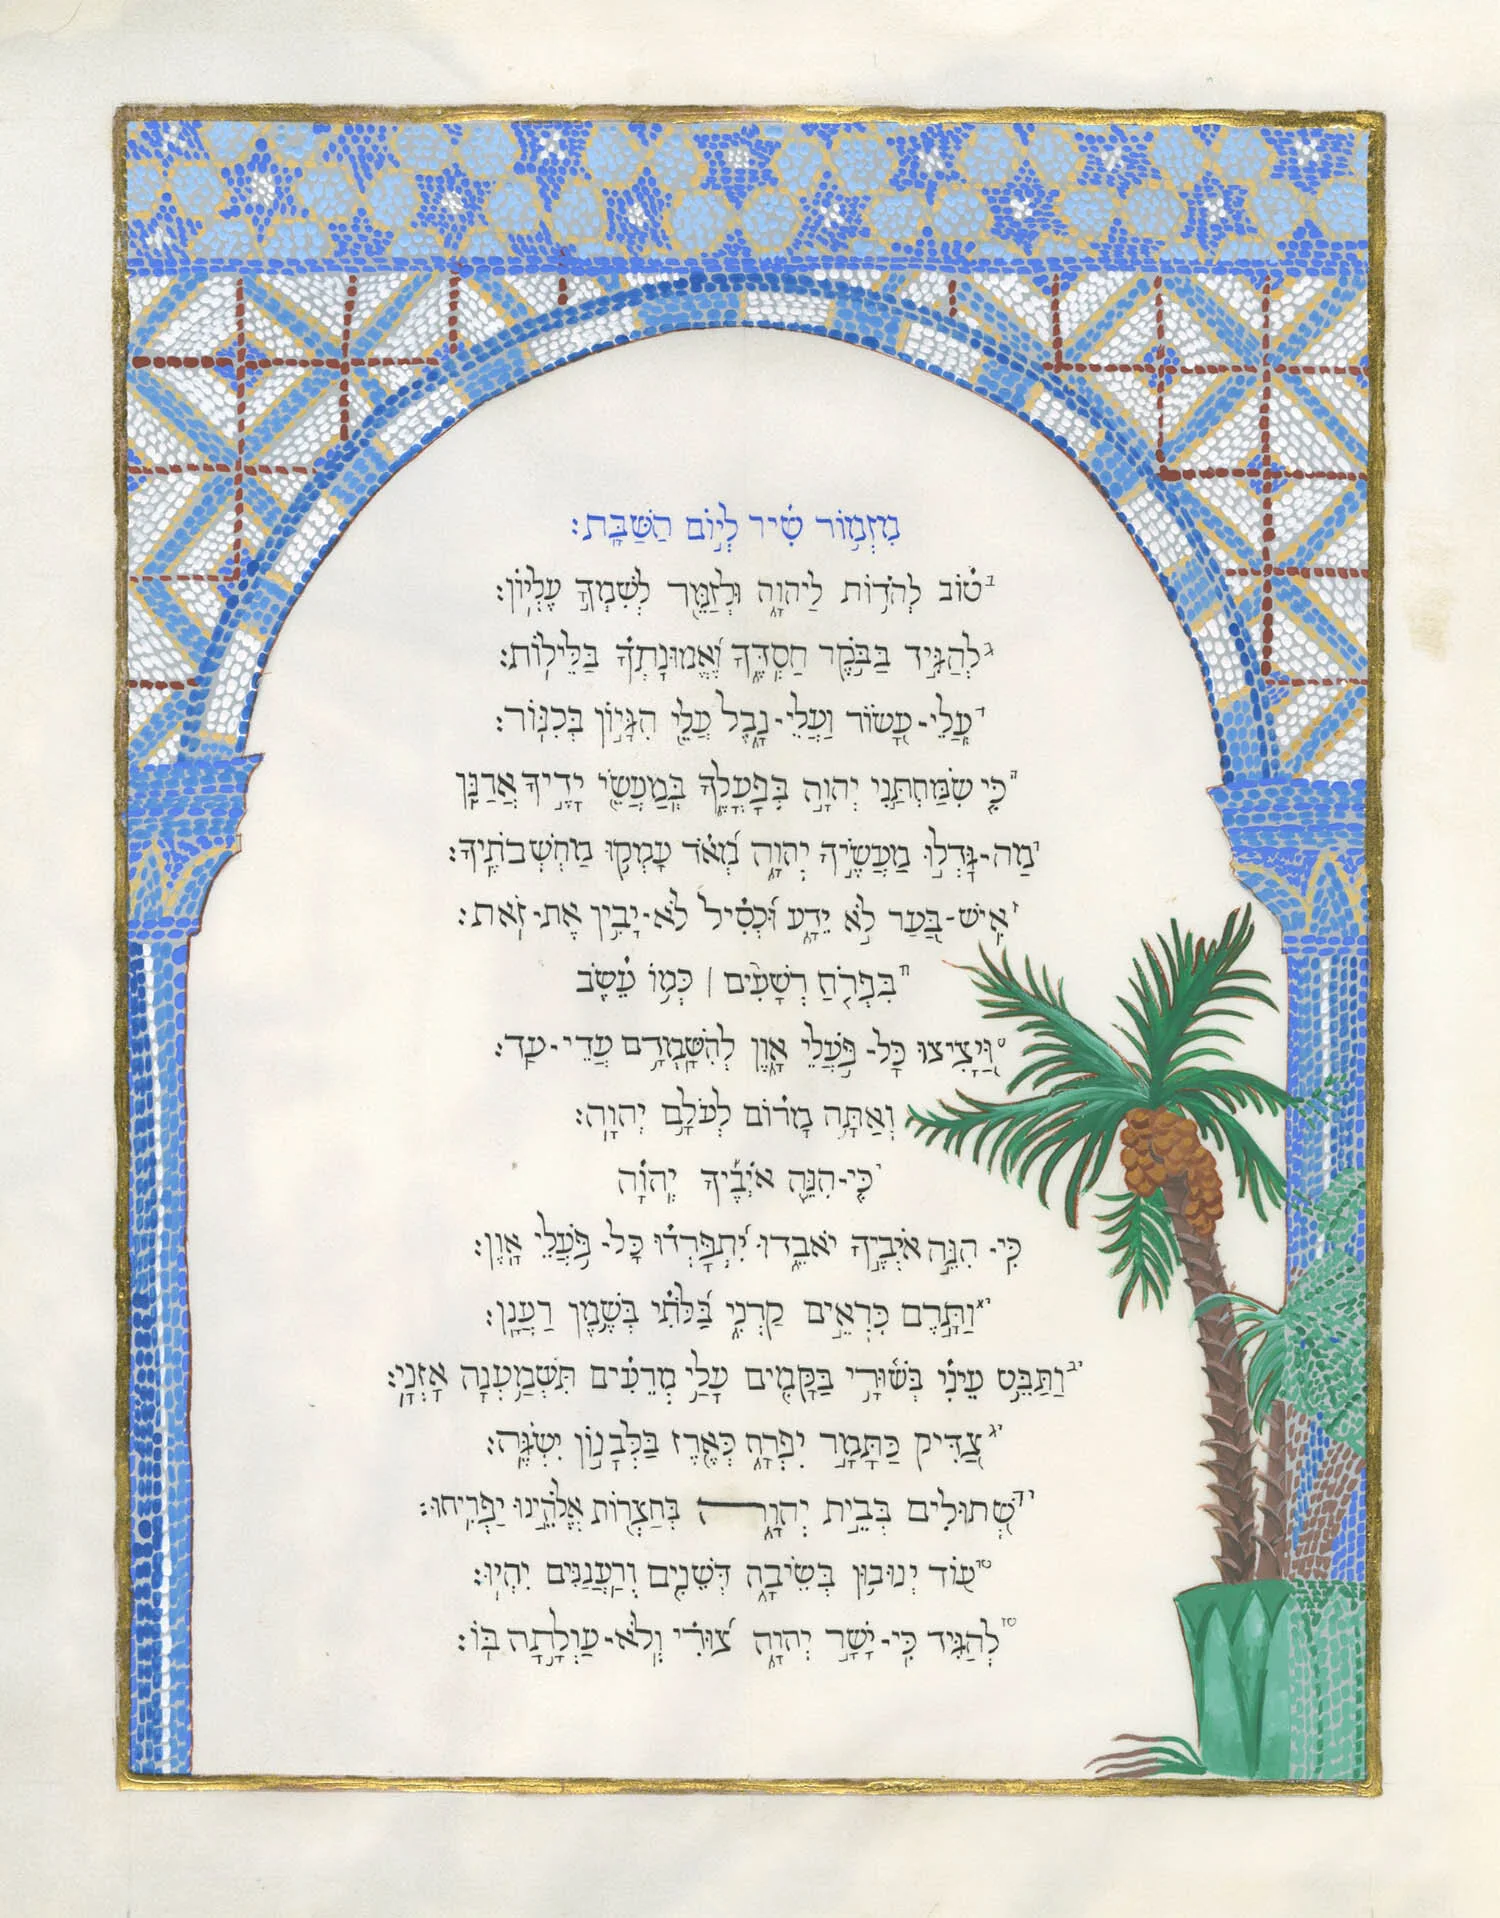 מִזְמ֥וֹר שִׁ֗יר לְי֣וֹם הַשַּׁבָּֽת׃
ב ט֗וֹב לְהֹד֥וֹת לַיהוָ֑ה וּלְזַמֵּ֖ר לְשִׁמְךָ֣ עֶלְיֽוֹן׃
ג לְהַגִּ֣יד בַּבֹּ֣קֶר חַסְדֶּ֑ךָ וֶ֝אֱמֽוּנָתְךָ֗ בַּלֵּילֽוֹת׃
ד עֲֽלֵי-עָ֭שׂוֹר וַעֲלֵי-נָ֑בֶל עֲלֵ֖י הִגָּי֣וֹן בְּכִנּֽוֹר׃
ה כִּ֤י שִׂמַּחְתַּ֣נִי יְהוָ֣ה בְּפָעֳלֶ֑ךָ בְּֽמַעֲשֵׂ֖י יָדֶ֣יךָ אֲרַנֵּֽן
ו מַה-גָּדְל֣וּ מַעֲשֶׂ֣יךָ יְהוָ֑ה מְ֝אֹ֗ד עָמְק֥וּ מַחְשְׁבֹתֶֽיךָ׃
ז אִֽישׁ-בַּ֭עַר לֹ֣א יֵדָ֑ע וּ֝כְסִ֗יל לֹא-יָבִ֥ין אֶת-זֹֽאת׃
ח בִּפְרֹ֤חַ רְשָׁעִ֨ים | כְּמ֥וֹ עֵ֗שֶׂב
ט וַ֭יָּצִיצוּ כָּל-פֹּ֣עֲלֵי אָ֑וֶן לְהִשָּֽׁמְדָ֥ם עֲדֵי-עַֽד׃
וְאַתָּ֥ה מָר֗וֹם לְעֹלָ֥ם יְהוָֽה׃
י כִּ֤י-הִנֵּ֪ה אֹיְבֶ֡יךָ יְֽהוָ֗ה
כִּֽי-הִנֵּ֣ה אֹיְבֶ֣יךָ יֹאבֵ֑דוּ יִ֝תְפָּרְד֗וּ כָּל-פֹּ֥עֲלֵי אָֽוֶן׃
יא וַתָּ֣רֶם כִּרְאֵ֣ים קַרְנִ֑י בַּ֝לֹּתִ֗י בְּשֶׁ֣מֶן רַעֲנָֽן׃
יב וַתַּבֵּ֥ט עֵינִ֗י בְּשׁ֫וּרָ֥י בַּקָּמִ֖ים עָלַ֥י מְרֵעִ֗ים תִּשְׁמַ֥עְנָה אָזְנָֽי׃
יג צַ֭דִּיק כַּתָּמָ֣ר יִפְרָ֑ח כְּאֶ֖רֶז בַּלְּבָנ֣וֹן יִשְׂגֶּֽה׃
יד שְׁ֭תוּלִים בְּבֵ֣ית יְהוָ֑ה בְּחַצְר֖וֹת אֱלֹהֵ֣ינוּ יַפְרִֽיחוּ׃
טו ע֭וֹד יְנוּב֣וּן בְּשֵׂיבָ֑ה דְּשֵׁנִ֖ים וְרַֽעֲנַנִּ֣ים יִהְיֽוּ׃
טז לְ֭הַגִּיד כִּֽי-יָשָׁ֣ר יְהוָ֑ה צ֝וּרִ֗י וְֽלֹא-עַוְלָ֥תָה בּֽוֹ׃